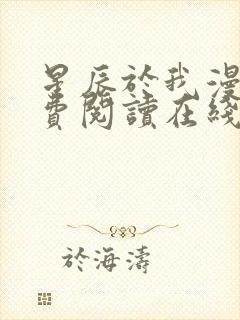 星辰於我漫
費閱讀在綫
於海濤